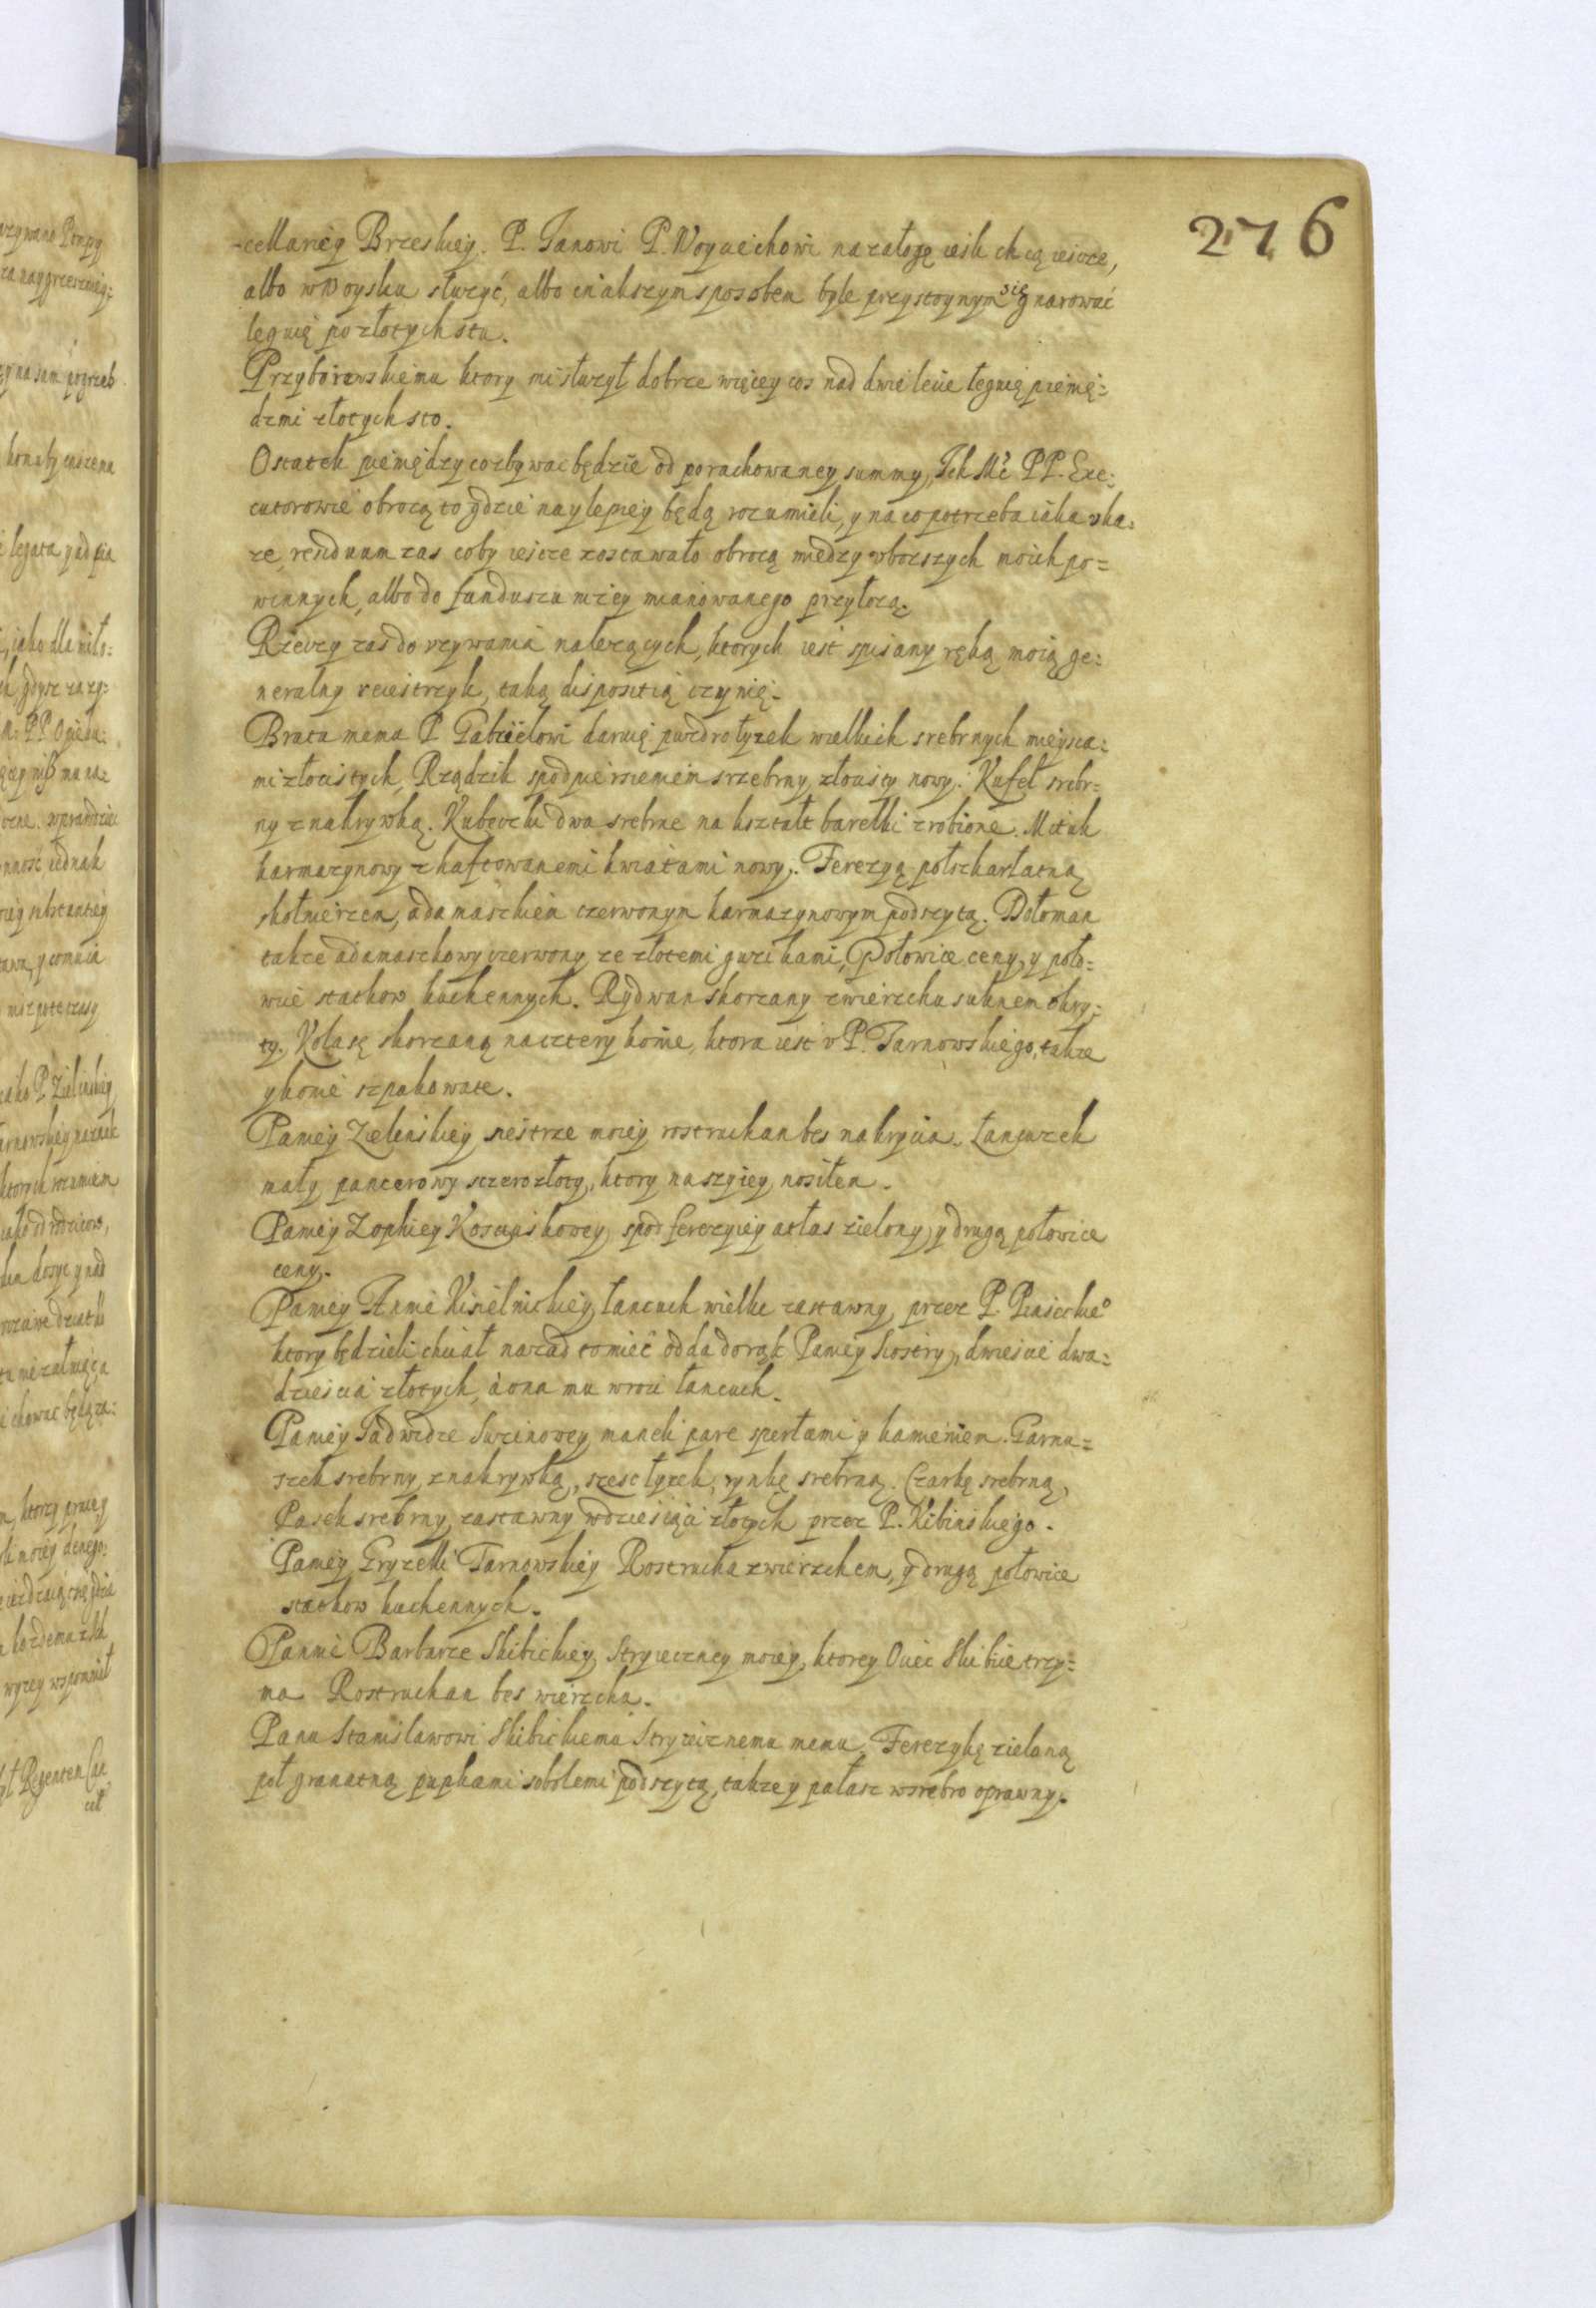 276
-cellariey Brzeskiey. P. Janowi P. Woyciechowi na załogę ieśli chcą iescze,
albo w Woysku służyć, albo inakszym sposobem byle przystoynym się narować
leguię po złotych stu.
Przyborowskiemu ktory mi służył dobrze więcey cos nad dwie lecie leguię pienię:
dzmi złotych sto.
Ostatek pieniędzy co zbywac będzie od porachowaney summy, Ich Mć PP. Exe:
cutorowie obrocą to gdzie naylepiey będą rozumieli, y na co potrzeba iaka uka:
ze, residuum zas coby iescze zostawało obrocą miedzy vboszych moich po=
winnych, albo do funduszu niżey mianowanego przyłożą.
Rzeczy zas do vzywania należących, ktorych iest spisany ręką moią ge:
neralny reiestrzyk, taką dispositią czynię.
Bratu memu P Gabrielowi daruię puzdro łyżek wielkich srebrnych mieysca:
mi złocistych, Rządzik spodpierscieniem srzebrny złocisty nowy. Kufel srebr=
ny z nakrywką. Kubeczki dwa srebrne na kształt barełki zrobione. Mētuk
karmazynowy z haftowanemi kwiatami nowy. Ferezyą połszkarłatną
skołnierzem, adamaszkiem czerwonym karmazynowym podszytą. Dołoman
takze adamaszkowy czerwony ze złotemi guzikami, Połowice ceny, y poło=
wice statkow kuchennych. Rydwan skorzany z wierzchu suknem okry:
ty. Kolasę skorzaną na cztery konie, ktora iest v P. Tarnowskiego, takze
y konie szpakowate.
Paniey Zielenskiey siestrze moiey rostruchan bes nakrycia. Łancuzek
mały pancerowy sczerozłoty, ktory na szyiey nosiłem.
Paniey Zophiey Kosciuskowey spod ferezyiey atłas zielony, y drugą połowice
ceny.
Paniey Annie Kisielnickiey łancuch wielki zastawny, przez P. Piaseckie°
ktory będzieli chciał nazad to mieć odda do rąk Paniey Siostry, dwiescie dwa:
dziescia złotych, à ona mu wroci łancuch.
Paniey Jadwidze Suzinowey maneli pare sperłami y kamieniem. Garnu=
szek srebrny z nakrywką, szesc łyżek, rynkę srebrną. Czarkę srebrną,
Pasek srebrny zastawny w dziesiąci złotych przez P. Kibinskiego.
Paniey Gryzelli Tarnowskiey Rostrucha z wierzchem, y drugą połowice
statkow kuchennych.
Pannie Barbarze Skibickiey Stryieczney moiey, ktorey Ociec Skibice trzy=
ma Rostruchan bes wierzchu.
Panu Stanisławowi Skibickiemu Stryiecznemu memu, Ferezykę zieloną
poł granatną pupkami sobolemi podszytą, takze y pałasz w srebro oprawny.